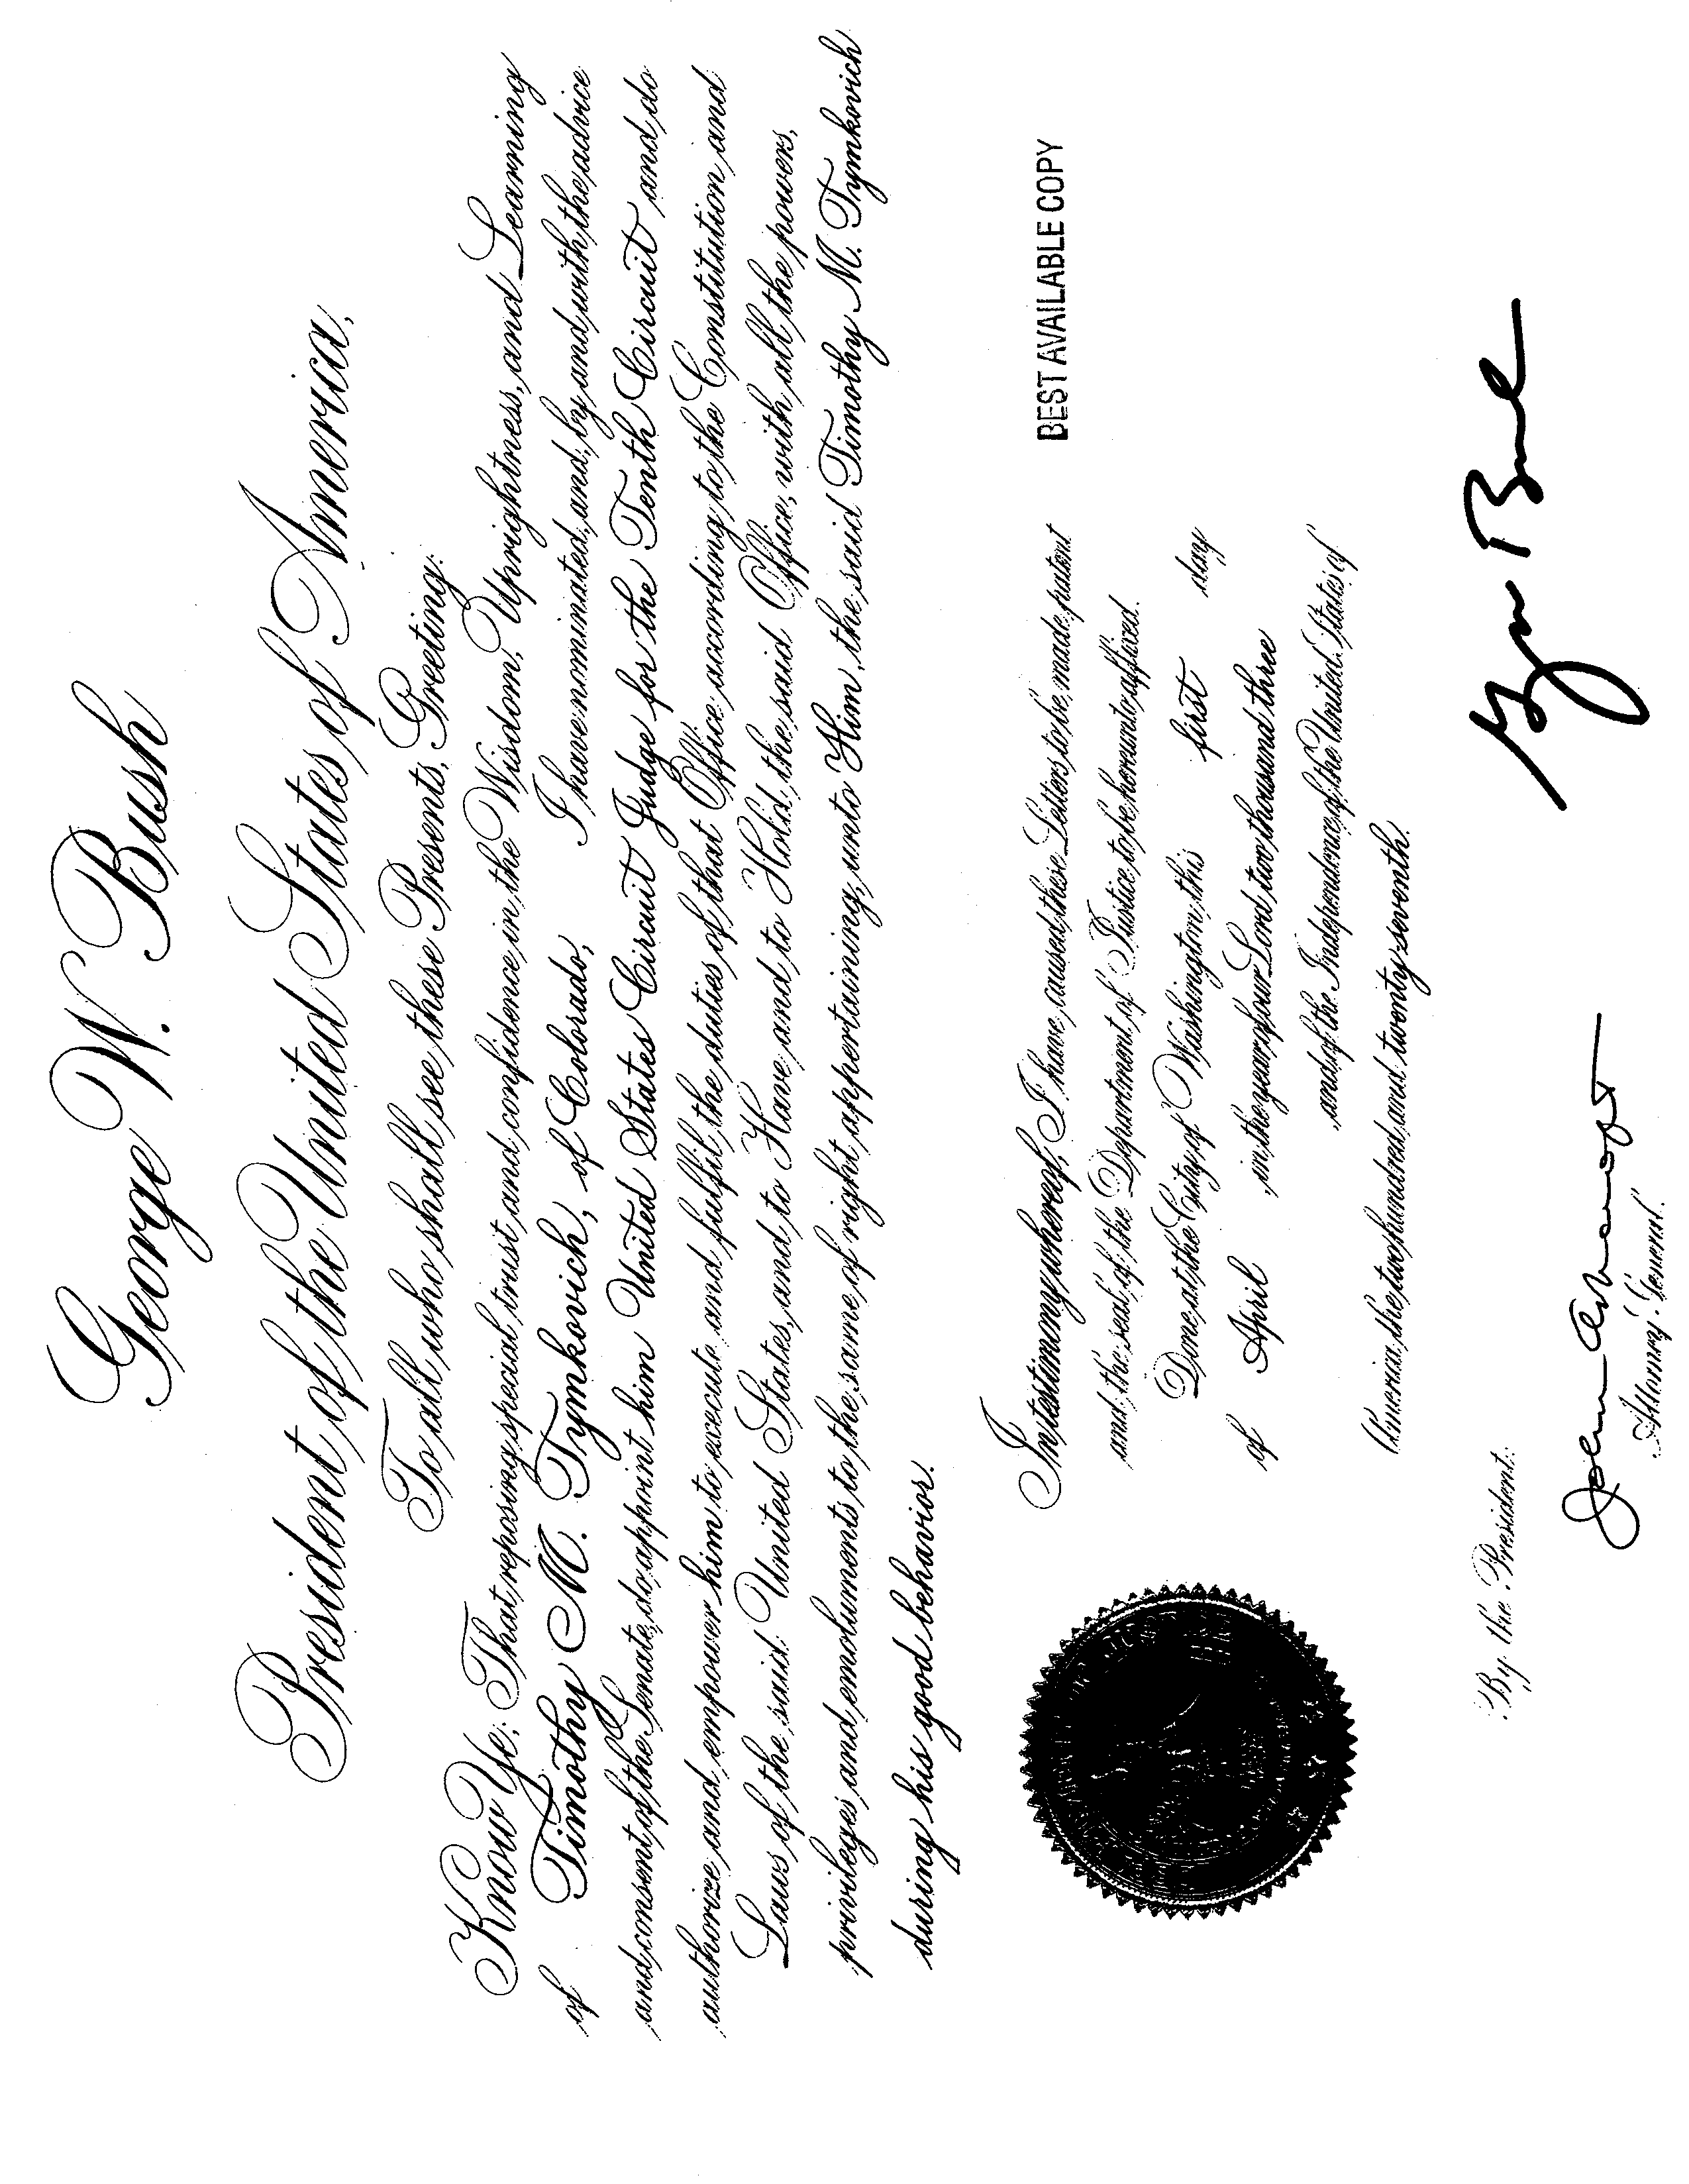 George W. Bush
President of the United States of America,
To all who shall see these Presents, Greeting:
Know Ye; That reposing special trust and confidence in the Wisdom, Uprightness, and Learning
of Timothy M. Tymkovich, of Colorado, I have nominated, and, by and with the advice
and consent of the Senate, do appoint him United States Circuit Judge for the Tenth Circuit and do
authorize and empower him to execute and fulfil the duties of that Office according to the Constitution and
Laws of the said United States, and to Have and to Hold the said Office, with all the powers,
privileges and emoluments to the same of right appertaining, unto Him, the said Timothy M. Tymkovich
during his good behavior.
BEST AVAILABLE COPY
In testimony whereof, I have caused these Letters to be made patent
and the seal of the Department of Justice to be hereunto affixed.
Done at the City of Washington this first day
of April in the year of our Lord two thousand three
and of the Independence of the United States of
America the two hundred and twenty seventh.
By the President:
Attorney General.